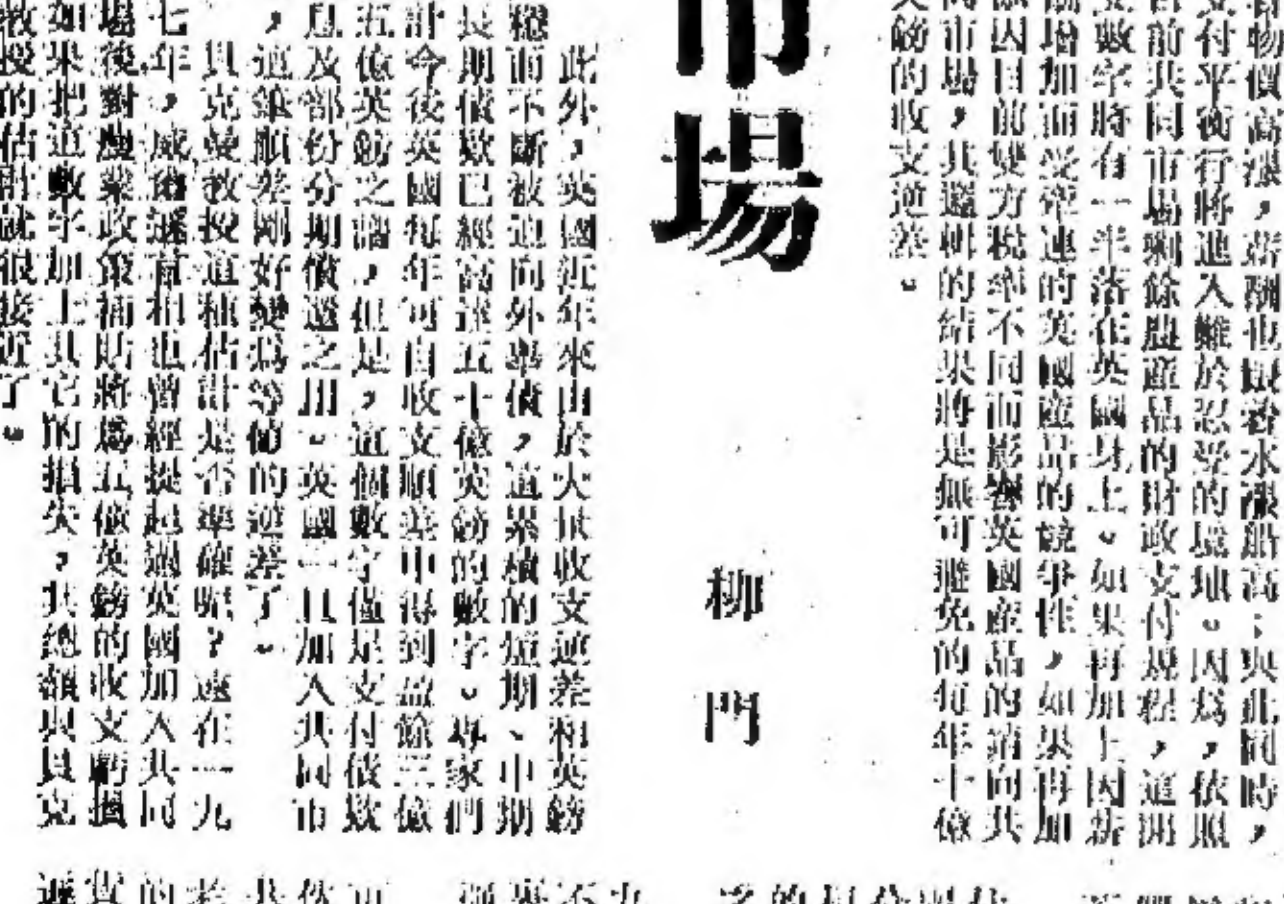 物價高漲，薪酬也跟着水漲船高；與此同時，
支付平衡行將進入難於忍受的境地。因爲，依照
目前共同市場剩餘農產品的財政支付規程，這開
支數字將有一半落在英國身上。如果再加上因薪
酬增加而受牽連的英國產品的競爭性，如果再加
因目前雙方稅率不同而影響英國產品的銷向共
同市場，其邏輯的結果將是無可避免的每年十億
英鎊的收支逆差。
市場
柳門
此外，英國近年來由於大量收支逆差和英鎊
穩而不斷被迫向外舉債，這累積的短期、中期
長期債款已經高達五十億英鎊的數字。專家們
計今後英國每年可自收支順差中得到盈餘三億
五億英鎊之譜，但是，這個數字僅足支付債款
息及部份分期償還之用。英國一旦加入共同市
，這筆順差剛好變爲等值的逆差了。
貝克曼教授這種估計是否準確呢？遠在一九
七年，威爾遜首相也曾經提起過英國加入共同
場後對農業政策補貼將爲五億英鎊的收支虧損
如果把這數字加上其它的損失，其總額與貝克
教授的估計就很接近了。